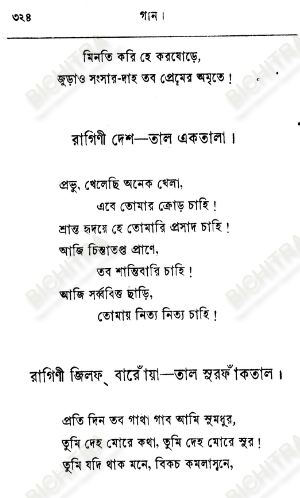 ৩২৪
গান।
মিনতি করি হে করযোড়ে,
জুড়াও সংসার-দাহ তব প্রেমের অমৃতে!
রাগিণী দেশ—তাল একতালা।
প্রভু, খেলেছি অনেক খেলা,
এবে তোমার ক্রোড় চাহি!
শ্রান্ত হৃদয়ে হে তোমারি প্রসাদ চাহি!
আজি চিন্তাতপ্ত প্রাণে,
তব শান্তিবারি চাহি!
আজি সর্ব্ববিত্ত ছাড়ি,
তোমায় নিত্য নিত্য চাহি!
রাগিণী জিলফ্ বারোঁয়া—তাল সুরফাঁকতাল।
প্রতি দিন তব গাথা গাব আমি সুমধুর,
তুমি দেহ মোরে কথা, তুমি দেহ মোরে সুর!
তুমি যদি থাক মনে, বিকচ কমলাসনে,
BICHITRA